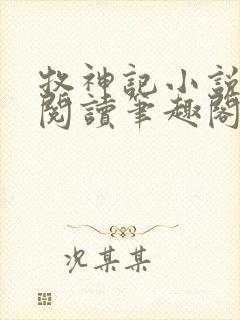 牧神記小說
閱讀筆趣閣
况某某